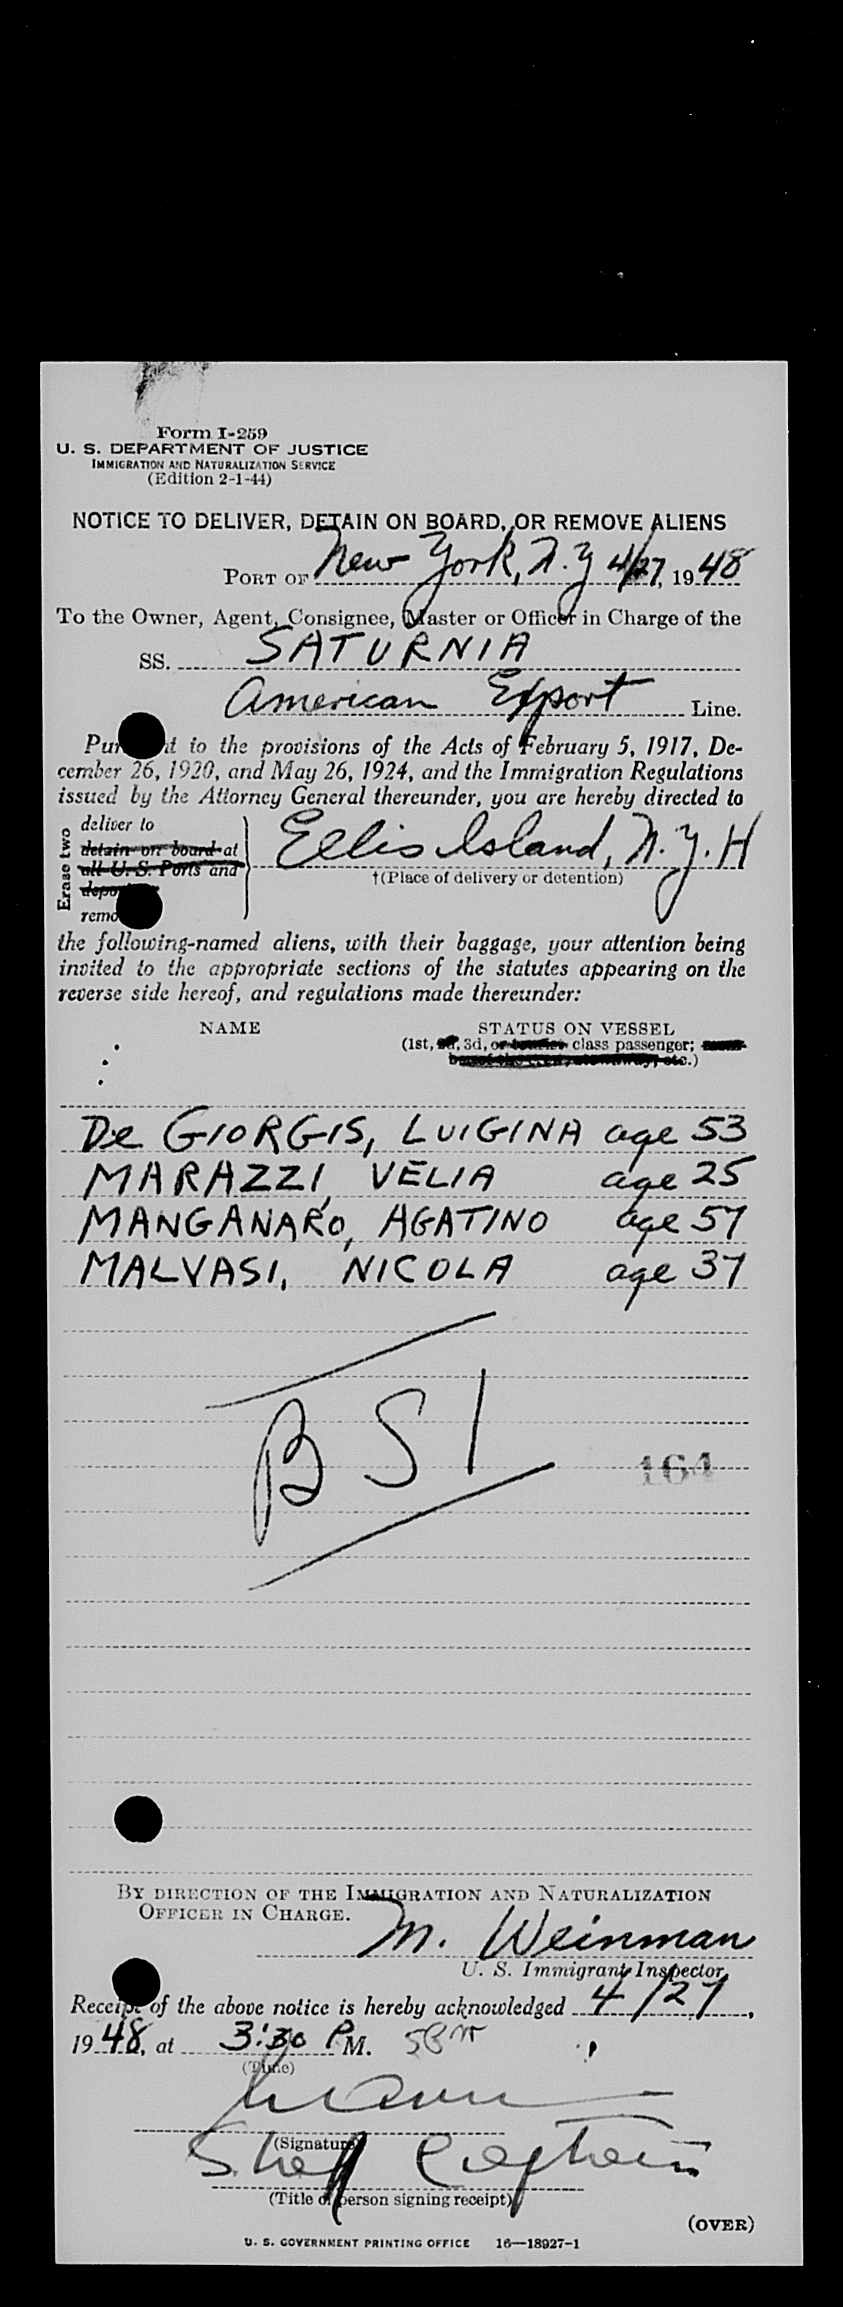 Form I-259
U. S. DEPARTMENT OF JUSTICE
IMMIGRATION AND NATURALIZATION SERVICE
(Edition 2-1-44)
NOTICE TO DELIVER, DETAIN ON BOARD, OR REMOVE ALIENS
PORT OF New York, N.Y 4/27, 1948
To the Owner, Agent, Consignee, Master or Officer in Charge of the
SS. SATURNIA
American Export Line.
to the provisions of the Acts of February 5, 1917, De-
cember 26, 1920, and May 26, 1924, and the Immigration Regulations
issued by the Attorney General thereunder, you are hereby directed to
Erase two
deliver to
detain on board at
all U. S. Ports and
Ellis Island, N.Y.H
†(Place of delivery or detention)
the following-named aliens, with their baggage, your attention being
invited to the appropriate sections of the statutes appearing on the
reverse side hereof, and regulations made thereunder:
NAME STATUS ON VESSEL
(1st, 2d, 3d, or tourist class passenger;
etc.)
De GIORGIS, LUIGINA age 53
MARAZZI, VELIA age 25
MANGANARO, AGATINO age 57
MALVASI, NICOLA age 37
BSI
164
BY DIRECTION OF THE IMMIGRATION AND NATURALIZATION
OFFICER IN CHARGE.
M. Weinman
U. S. Immigrant Inspector
Receipt of the above notice is hereby acknowledged 4/27,
1948, at 3:30 PM.
(Time)
(Signature)
(Title of person signing receipt)
(OVER)
U. S. GOVERNMENT PRINTING OFFICE 16—18927-1